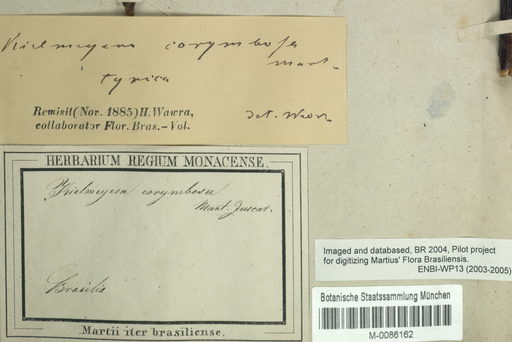 Kielmeyera corymbosa
Mart.
typica
Remisit (Nov. 1885) H. Wawra,
collaborator Flor. Bras. - Vol.
Det. Wawra
HERBARIUM REGIUM MONACENSE.
Kielmeyera corymbosa
Mart.
Brasilia
Martii iter brasiliense.
Imaged and databased, BR 2004, Pilot project
for digitizing Martius' Flora Brasiliensis.
ENBI-WP13 (2003-2005)
Botanische Staatssammlung München
M-0086162